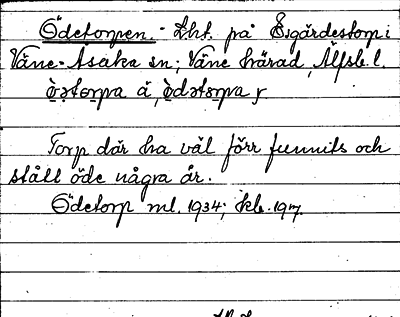 Ödetorpen. - Lht. på Esgärdestorp i
Väne-Åsaka sn; Väne härad, Älfsb. l.
Torp där ha väl förr funnits och
stått öde några år.
Ödetorp ml. 1934; kb. 1917.